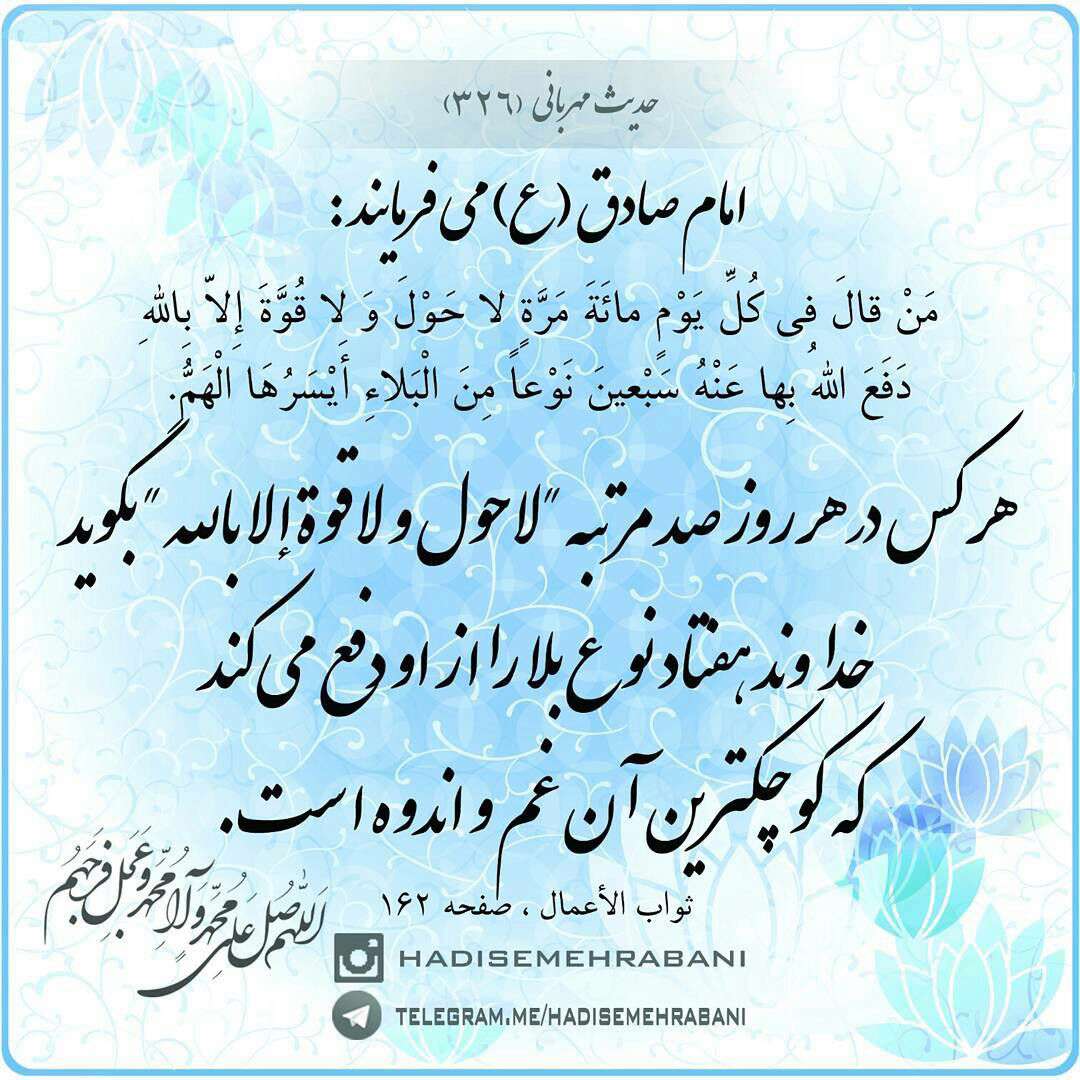 حدیث مهربانی (۳۲۶)
امام صادق (ع) می فرمایند:
مَنْ قالَ فی کُلِّ یَوْمٍ مائَةَ مَرَّةٍ لا حَوْلَ وَ لا قُوَّةَ إِلاّ بِاللهِ
دَفَعَ اللهُ بِها عَنْهُ سَبْعینَ نَوْعاً مِنَ الْبَلاءِ أَیْسَرُهَا الْهَمُّ.
هر کس در هر روز صد مرتبه "لا حول و لا قوة إلا بالله" بگوید
خداوند هفتاد نوع بلا را از او دفع می کند
که کوچکترین آن غم و اندوه است.
ثواب الأعمال ، صفحه ۱۶۲
اَللّهُمَّ صَلِّ عَلی مُحَمَّد وَ آلِ مُحَمَّد وَ عَجِّل فَرَجَهُم
HADISEMEHRABANI
TELEGRAM.ME/HADISEMEHRABANI